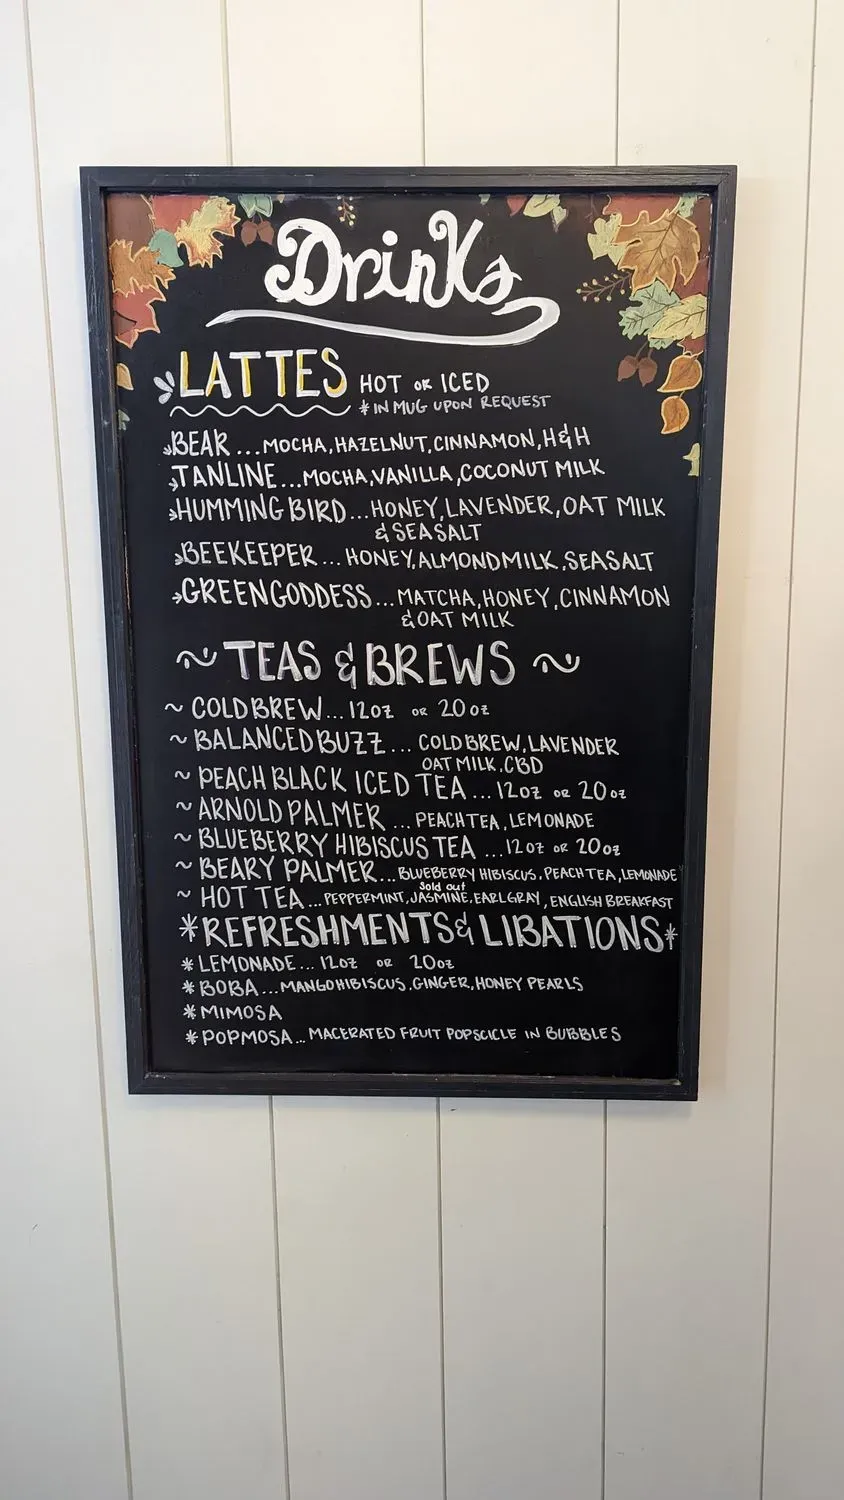 Drinks
LATTES HOT OR ICED
* IN MUG UPON REQUEST
BEAR ... MOCHA, HAZELNUT, CINNAMON, H&H
TANLINE ... MOCHA, VANILLA, COCONUT MILK
HUMMING BIRD ... HONEY, LAVENDER, OAT MILK
& SEASALT
BEEKEEPER ... HONEY, ALMOND MILK, SEASALT
GREEN GODDESS ... MATCHA, HONEY, CINNAMON
& OAT MILK
~ TEAS & BREWS ~
~ COLD BREW ... 12oz OR 20oz
~ BALANCED BUZZ ... COLD BREW, LAVENDER
OAT MILK, CBD
~ PEACH BLACK ICED TEA ... 12oz OR 20oz
~ ARNOLD PALMER ... PEACH TEA, LEMONADE
~ BLUEBERRY HIBISCUS TEA ... 12oz OR 20oz
~ BEARY PALMER ... BLUEBERRY HIBISCUS, PEACH TEA, LEMONADE
Sold out
~ HOT TEA ... PEPPERMINT, JASMINE, EARL GRAY, ENGLISH BREAKFAST
* REFRESHMENTS & LIBATIONS *
* LEMONADE ... 12oz OR 20oz
* BOBA ... MANGO HIBISCUS, GINGER, HONEY PEARLS
* MIMOSA
* POPMOSA ... MACERATED FRUIT POPSCICLE IN BUBBLES